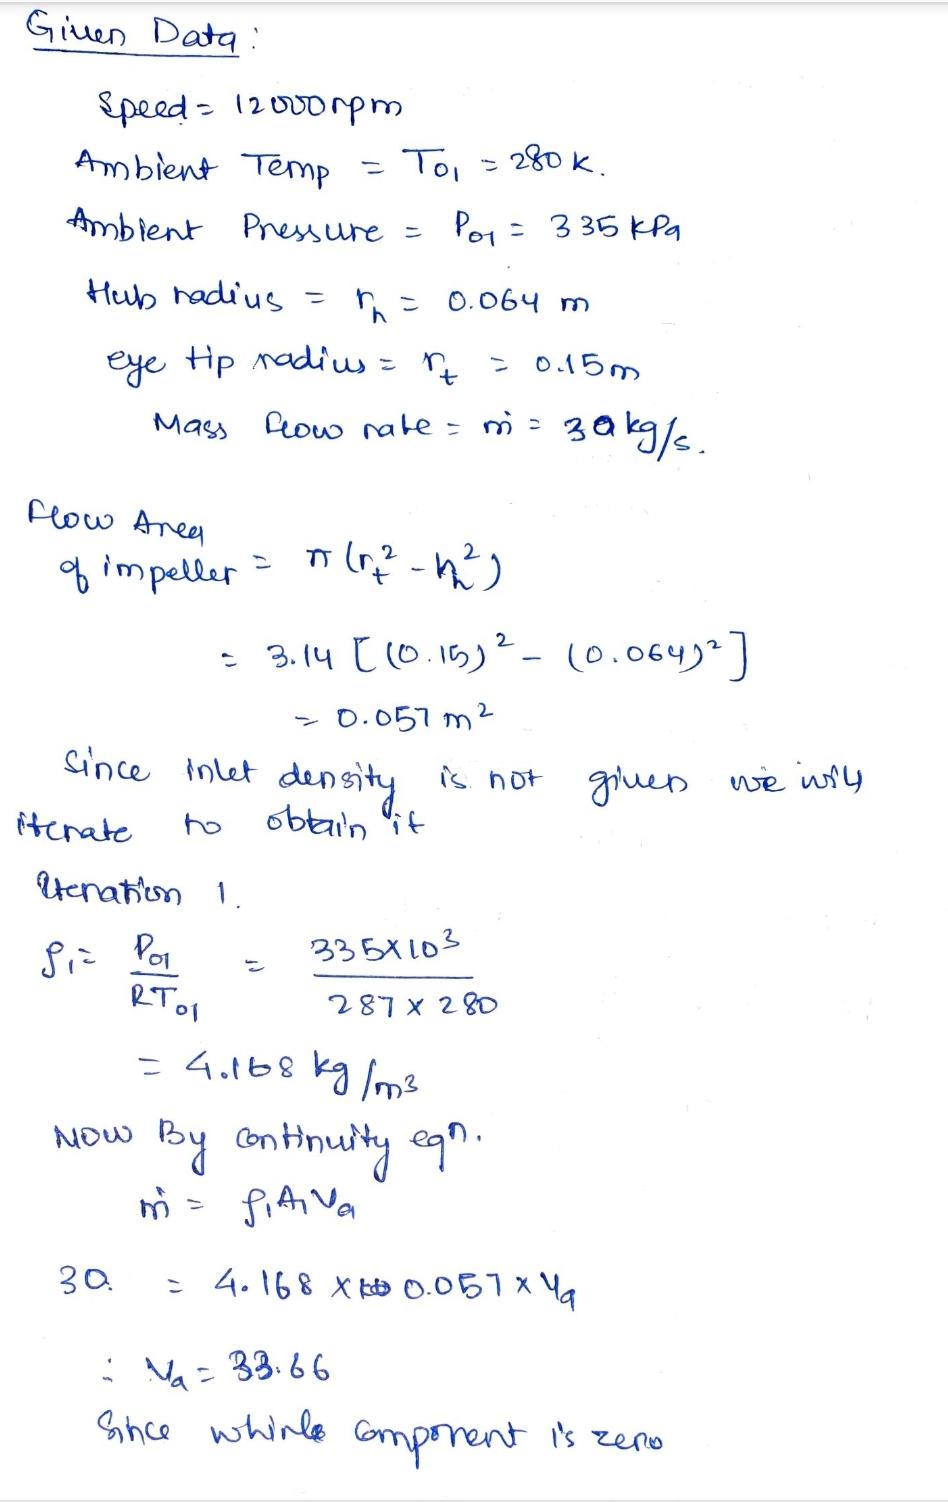 Given Data:
Speed = 12000rpm
Ambient Temp = T01 = 280 K.
Ambient Pressure = P01 = 335 kPa
Hub radius = rh = 0.064 m
eye tip radius = rt = 0.15m
Mass flow rate = ṁ = 30 kg/s.
flow Area
of impeller = π (rt² - rh²)
= 3.14 [(0.15)² - (0.064)²]
= 0.057 m²
Since inlet density is not given we will
iterate to obtain it
Iteration 1.
ρ1 = P01 / RT01 = 335×10³ / 287 × 280
= 4.168 kg/m3
NOW By continuity eqn.
ṁ = ρ1A1Va
30 = 4.168 × 0.057 × Va
∴ Va = 33.66
Since whirle component is zero